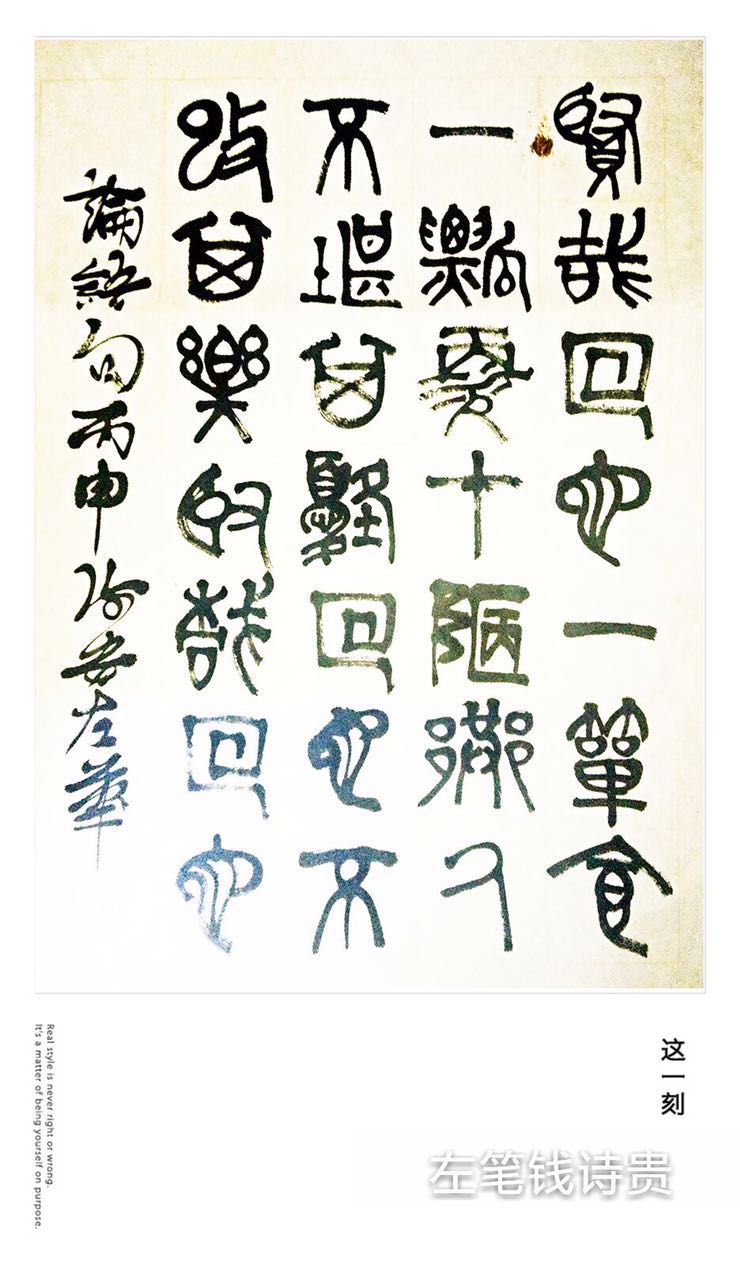 賢哉回也一簞食
一瓢飲在陋巷人
不堪其憂回也不
改其樂賢哉回也
論語句丙申左筆
这一刻
左笔钱诗贵
Real style is never right or wrong.
It's a matter of being yourself on purpose.